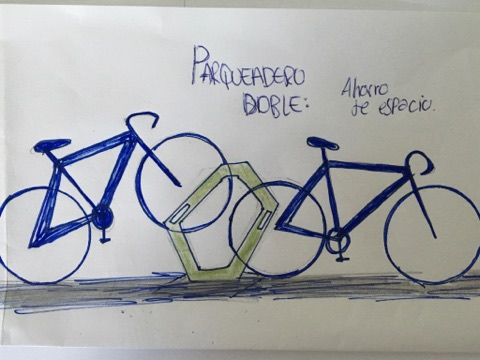 PARQUEADERO
DOBLE:
Ahorro
de espacio.